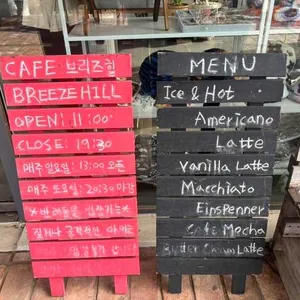 CAFE 브리즈힐
BREEZEHILL
OPEN: 11:00
CLOSE: 19:30
매주 일요일: 13:00 오픈
매주 토요일: 20:30 마감
MENU
Ice & Hot
Americano
Latte
Vanilla Latte
Macchiato
Einspenner
Cafe Mocha
Butter Cream Latte